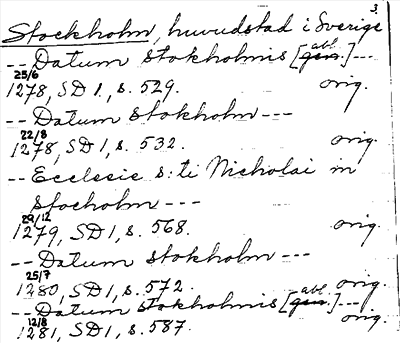 3.
Stockholm, huvudstad i Sverige
-- Datum Stokholmis [gen. abl.]---
25/6
1278, SD 1, s. 529. orig.
-- Datum Stokholm ---
22/8
1278, SD 1, s. 532. orig.
-- Ecclesie s:ti Nicholai in
Stocholm ---
29/12
1279, SD 1, s. 568. orig.
-- Datum Stokholm ---
25/7
1280, SD 1, s. 572. orig.
-- Datum Stokholmis [gen. abl.]---
12/8
1281, SD 1, s. 587. orig.